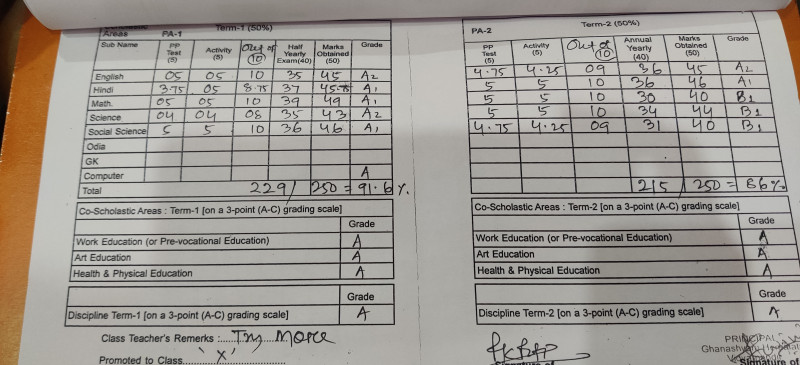 Scholastic Areas PA-1 Term-1 (50%)
Sub Name PP Test (5) Activity (5) Out of (10) Half Yearly Exam(40) Marks Obtained (50) Grade
English 05 05 10 35 45 A2
Hindi 3.75 05 8.75 37 45.75 A1
Math. 05 05 10 39 49 A1
Science 04 04 08 35 43 A2
Social Science 5 5 10 36 46 A1
Odia
GK
Computer A
Total 229/250 = 91.6%
Co-Scholastic Areas : Term-1 [on a 3-point (A-C) grading scale]
Grade
Work Education (or Pre-vocational Education) A
Art Education A
Health & Physical Education A
Grade
Discipline Term-1 [on a 3-point (A-C) grading scale] A
Class Teacher's Remarks :..... Try More
Promoted to Class..... 'X'
PA-2 Term-2 (50%)
PP Test (5) Activity (5) Out of (10) Annual Yearly (40) Marks Obtained (50) Grade
4.75 4.25 09 36 45 A2
5 5 10 36 46 A1
5 5 10 30 40 B1
5 5 10 34 44 B1
4.75 4.25 09 31 40 B1
215/250 = 86%
Co-Scholastic Areas : Term-2 [on a 3-point (A-C) grading scale]
Grade
Work Education (or Pre-vocational Education) A
Art Education A
Health & Physical Education A
Grade
Discipline Term-2 [on a 3-point (A-C) grading scale] A
PRINCIPAL
Signature of
Signature of